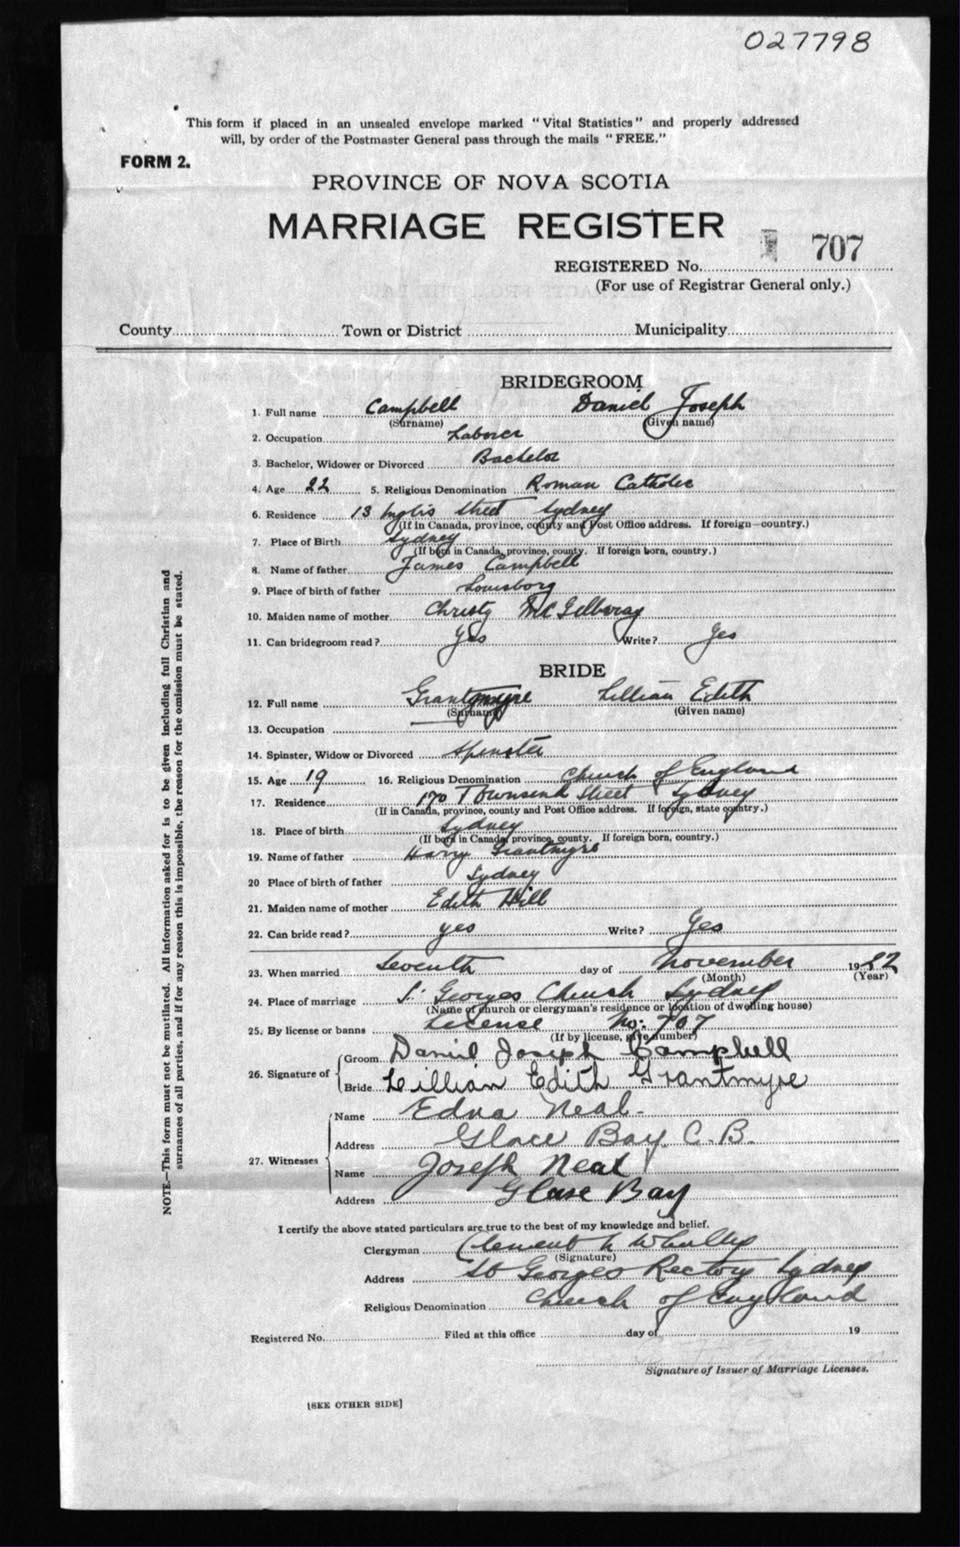 027798
This form if placed in an unsealed envelope marked "Vital Statistics" and properly addressed
will, by order of the Postmaster General pass through the mails "FREE."
FORM 2.
PROVINCE OF NOVA SCOTIA
MARRIAGE REGISTER
REGISTERED No. 707
(For use of Registrar General only.)
County Town or District Municipality
BRIDEGROOM
1. Full name Campbell Daniel Joseph
(Surname) (Given name)
2. Occupation Laborer
3. Bachelor, Widower or Divorced Bachelor
4. Age 22 5. Religious Denomination Roman Catholic
6. Residence 13 Inglis Street Sydney
(If in Canada, province, county and Post Office address. If foreign—country.)
7. Place of Birth Sydney
(If born in Canada, province, county. If foreign born, country.)
8. Name of father James Campbell
9. Place of birth of father Louisborg
10. Maiden name of mother Christy
11. Can bridegroom read? Yes Write? Yes
BRIDE
12. Full name Grantmyre Lillian Edith
(Surname) (Given name)
13. Occupation
14. Spinster, Widow or Divorced Spinster
15. Age 19 16. Religious Denomination Church of England
17. Residence 170 Townsend Street Sydney
(If in Canada, province, county and Post Office address. If foreign, state country.)
18. Place of birth Sydney
(If born in Canada, province, county. If foreign born, country.)
19. Name of father Harry Grantmyre
20 Place of birth of father Sydney
21. Maiden name of mother Edith Hill
22. Can bride read? yes Write? Yes
23. When married Seventh day of November 1922
(Month) (Year)
24. Place of marriage St Georges Church Sydney
(Name of church or clergyman's residence or location of dwelling house)
25. By license or banns License No: 707
(If by license, give number)
26. Signature of Groom Daniel Joseph Campbell
Bride Lillian Edith Grantmyre
27. Witnesses Name Edna Neal
Address Glace Bay C.B.
Name Joseph Neal
Address Glace Bay
I certify the above stated particulars are true to the best of my knowledge and belief.
Clergyman Clement
(Signature)
Address St Georges Rectory Sydney
Religious Denomination Church of England
Registered No. Filed at this office day of 19
Signature of Issuer of Marriage Licenses.
[SEE OTHER SIDE]
NOTE—This form must not be mutilated. All information asked for is to be given including full Christian and
surnames of all parties, and if for any reason this is impossible, the reason for the omission must be stated.